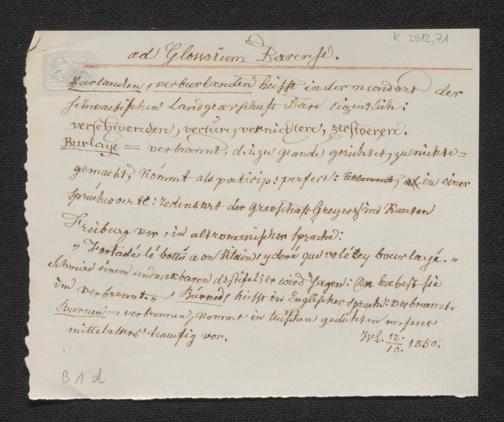 K 2912,71
ad Glossarium Barense.
Burlanden, verburlanden heisst in der mundart der
schwaebischen Landgrafschaft Bare eigentlich:
verschwenden, vertun, vernichten, zerstoeren.
Burlaye = verbrannt, d:i: zu grunde gerichtet, zu nichte=
gemacht, kömmt als particip: perfect: in einer
sprichwoertl: redensart der grafschaft Greyerz im Kanton
Freiburg vor, in altromanischer sprache:
" lé botté a on vilain, y dé que volé ey bourlayé. "
Schmire einem undankbaren die stifel; er wird sagen: du habest sie
im verbrennt. Burned, heisst in Englischer sprache: verbrannt.
Burnen = verbrennen, kommt in teütschen gedichten unseres
mittelalters haeufig vor.
12/10. 1850.
B 1 d